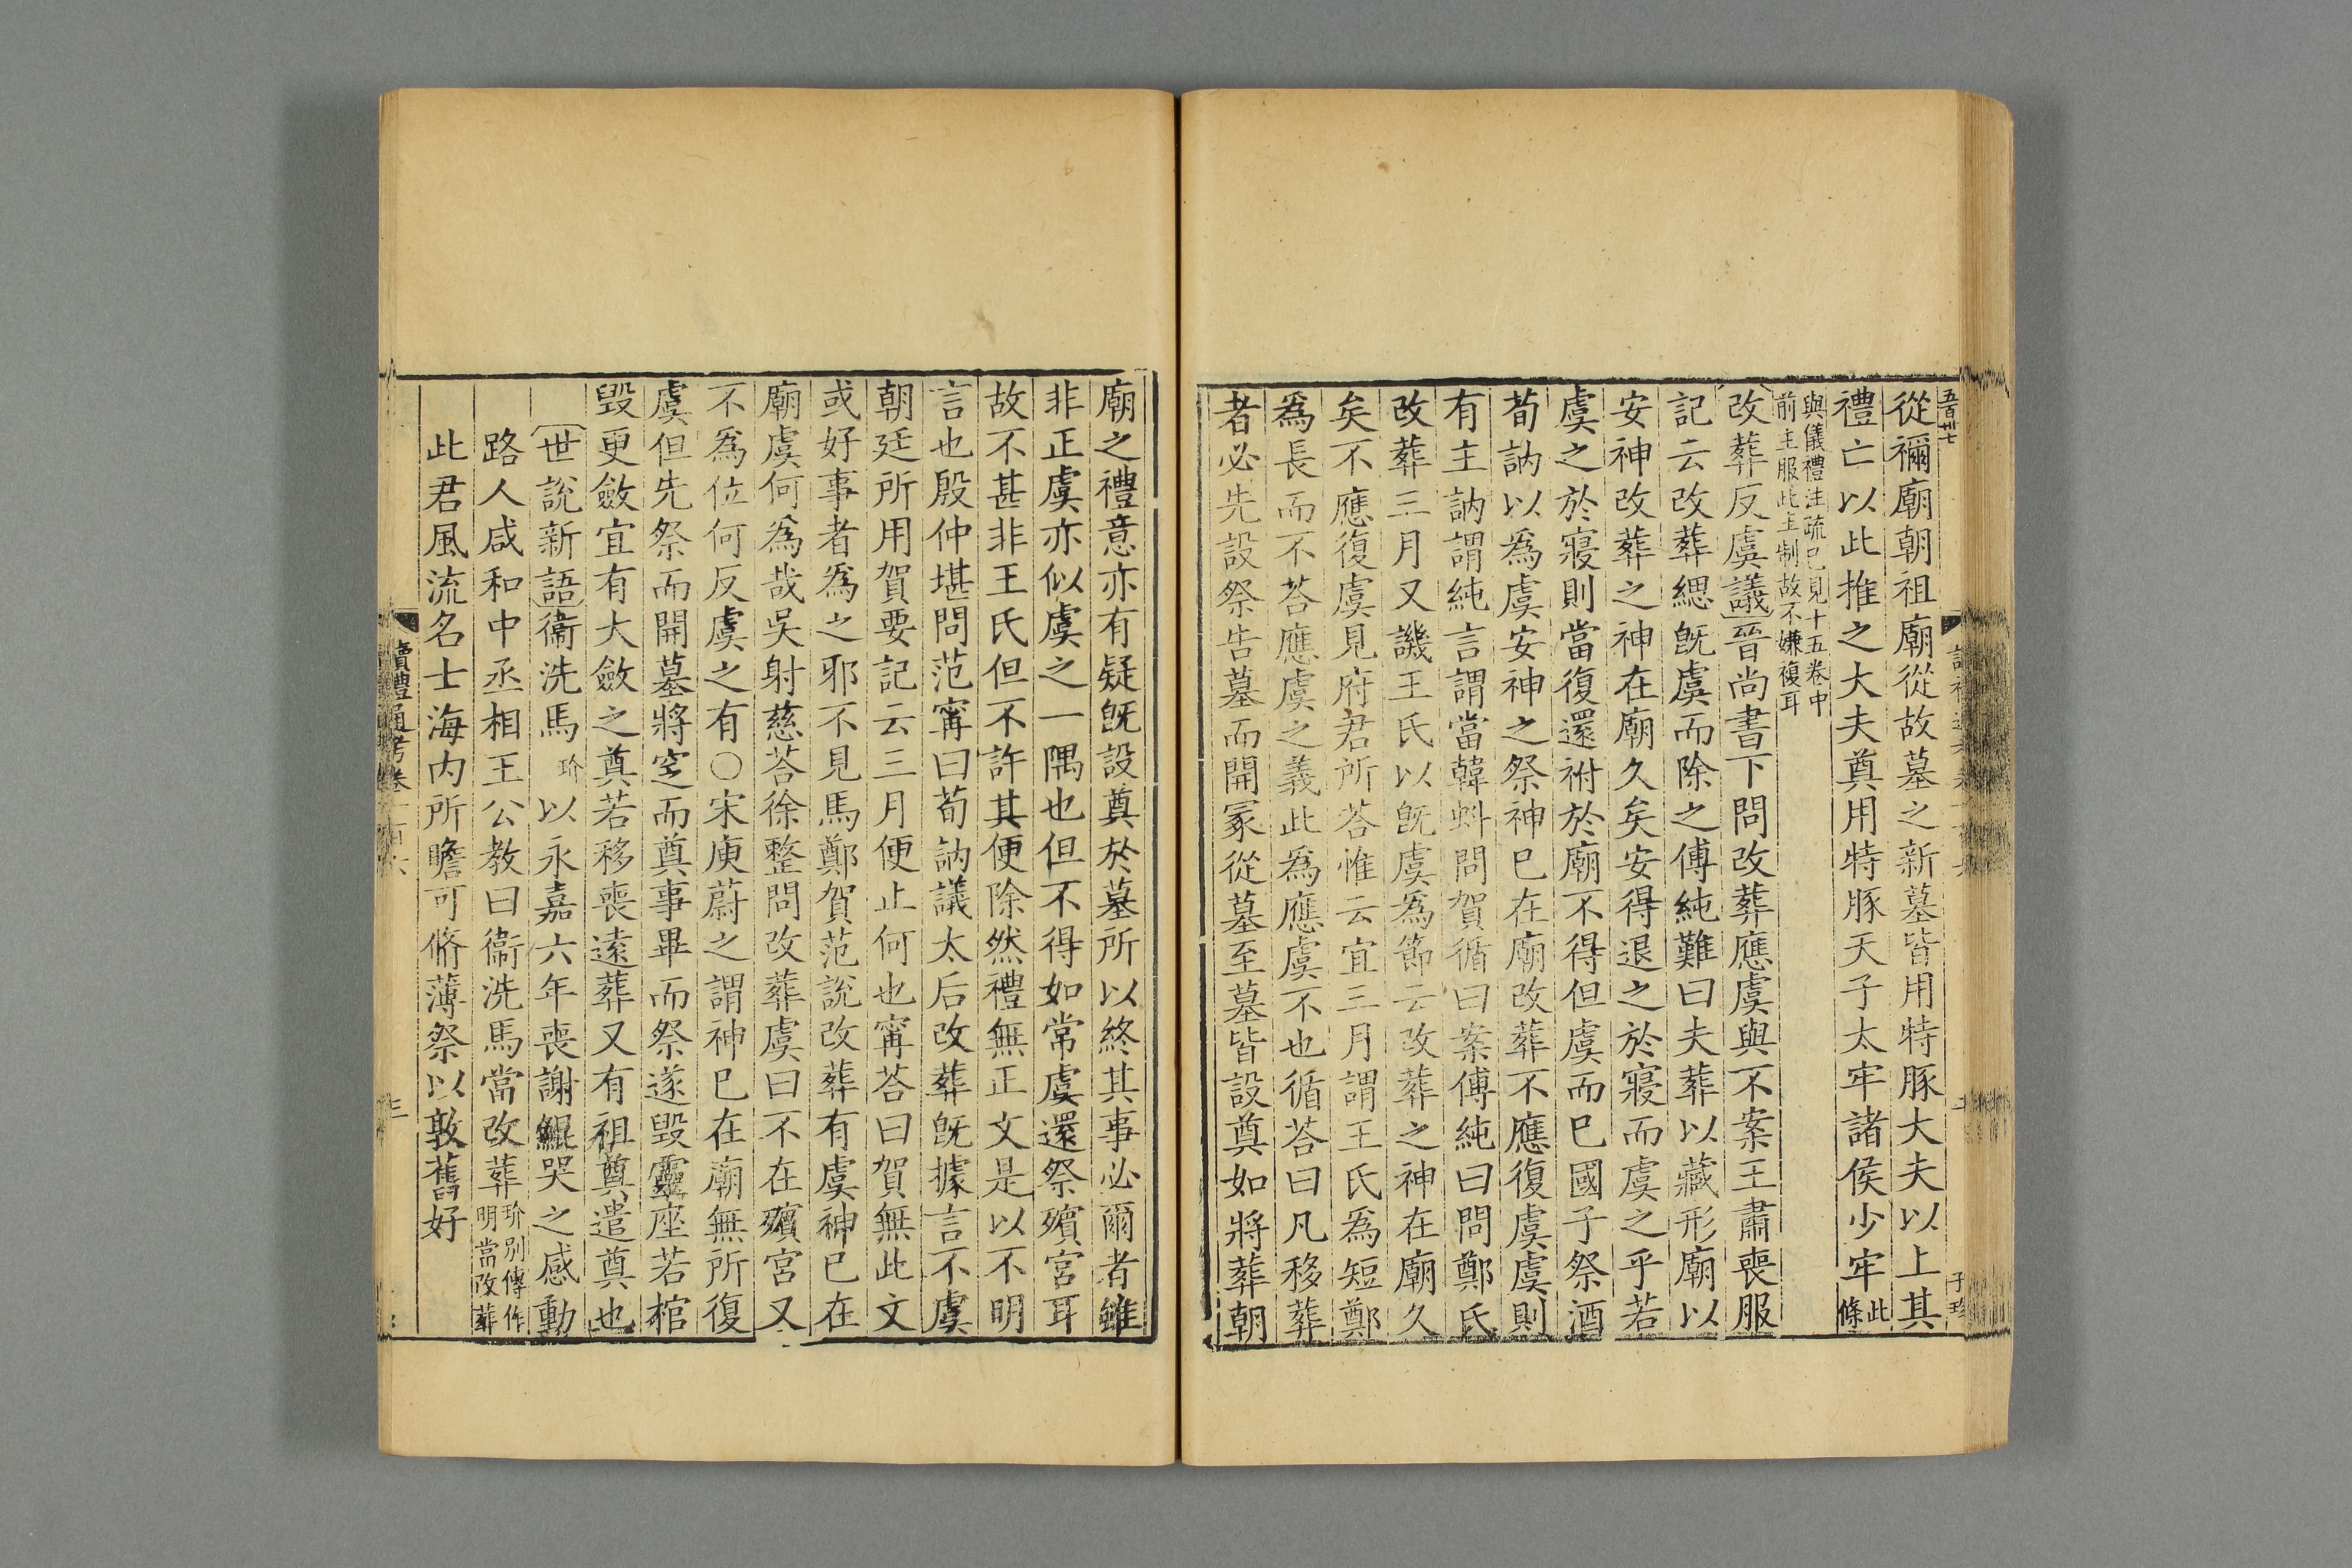 五百卅七
從禰廟朝祖廟從故墓之新墓皆用特豚大夫以上其
禮亡以此推之大夫奠用特豚天子太牢諸侯少牢此條
與儀禮注疏已見十五卷中
前主服此主制故不嫌複耳
改葬反虞議晉尚書下問改葬應虞與不案王肅喪服
記云改葬緦旣虞而除之傅純難曰夫葬以藏形廟以
安神改葬之神在廟久矣安得退之於寢而虞之乎若
虞之於寢則當復還祔於廟不得但虞而巳國子祭酒
荀訥以爲虞安神之祭神巳在廟改葬不應復虞虞則
有主訥謂純言謂當韓蚪問賀循曰案傅純曰問鄭氏
改葬三月又譏王氏以旣虞爲節云改葬之神在廟久
矣不應復虞見府君所荅惟云宜三月謂王氏爲短鄭
爲長而不荅應虞之義此爲應虞不也循荅曰凡移葬
者必先設祭告墓而開冢從墓至墓皆設奠如將葬朝
廟之禮意亦有疑旣設奠於墓所以終其事必爾者雖
非正虞亦似虞之一隅也但不得如常虞還祭殯宮耳
故不甚非王氏但不許其便除然禮無正文是以不明
言也殷仲堪問范甯曰荀訥議太后改葬旣據言不虞
朝廷所用賀要記云三月便止何也甯荅曰賀無此文
或好事者爲之邪不見馬鄭賀范說改葬有虞神已在
廟虞何爲哉吳射慈荅徐整問改葬虞曰不在殯宮又
不爲位何反虞之有○宋庾蔚之謂神巳在廟無所復
虞但先祭而開墓將窆而奠事畢而祭遂毀靈座若棺
毀更斂宜有大斂之奠若移喪遠葬又有祖奠遣奠也
世說新語衞洗馬玠以永嘉六年喪謝鯤哭之感動
路人咸和中丞相王公教曰衞洗馬當改葬玠別傳作明當改葬
此君風流名士海內所瞻可脩薄祭以敦舊好
讀禮通考卷